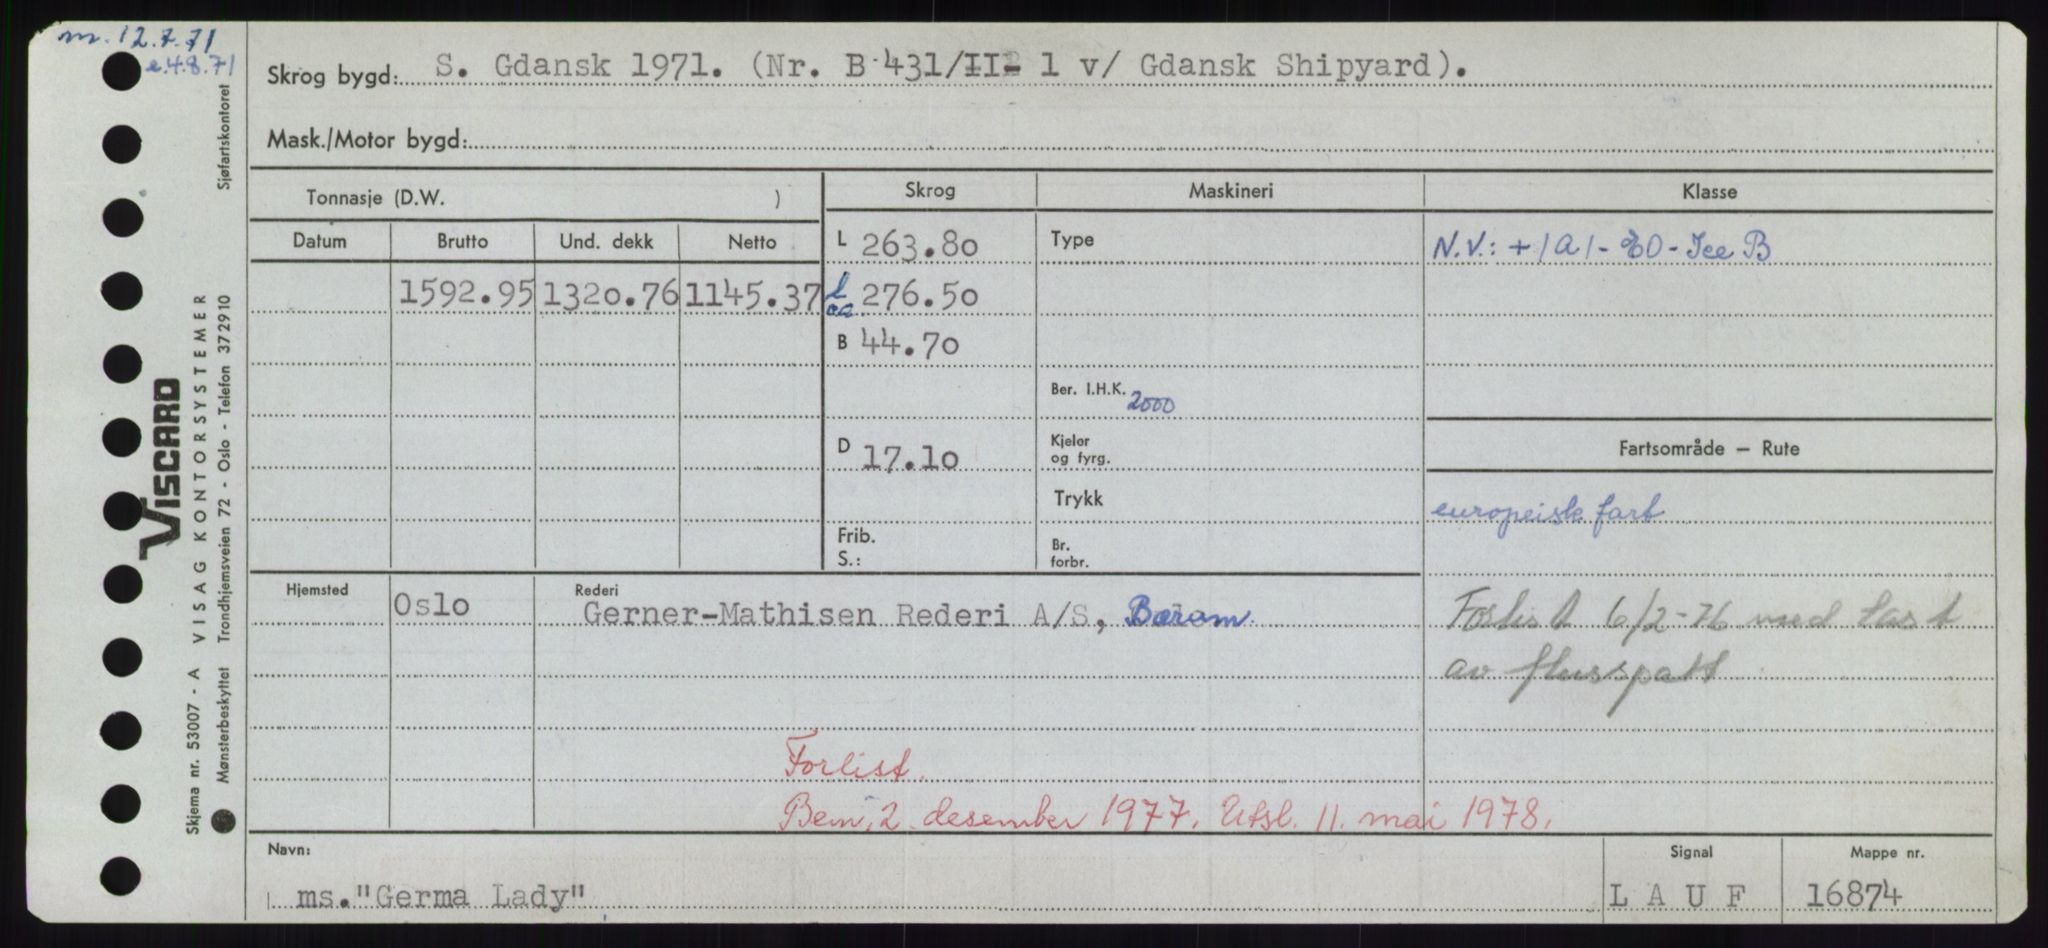 m. 12.7.71
e.4.8.71
Skrog bygd: S. Gdansk 1971. (Nr. B 431/II- 1 v/ Gdansk Shipyard).
Mask./Motor bygd:
Tonnasje (D.W. )
Skrog
Maskineri
Klasse
Datum
Brutto
Und. dekk
Netto
L 263.80
Type
N.V.: +1A1-E0-Ice B
1592.95
1320.76
1145.37
l oa 276.50
B 44.70
Ber. I.H.K. 2000
D 17.10
Kjeler og fyrg.
Fartsområde — Rute
Trykk
europeisk fart
Frib.
S.:
Br. forbr.
Hjemsted
Oslo
Rederi
Gerner-Mathisen Rederi A/S, Bærum
Forlist 6/2-76 med last
av flusspatt
Forlist.
Bem, 2. desember 1977. Utsl. 11. mai 1978.
Navn:
ms."Germa Lady"
Signal
L A U F
Mappe nr.
16874
Skjema nr. 53007 - A VISAG KONTORSYSTEMER
Mønsterbeskyttet Trondhjemsveien 72 - Oslo - Telefon 37 29 10 Sjøfartskontoret
VISCARD